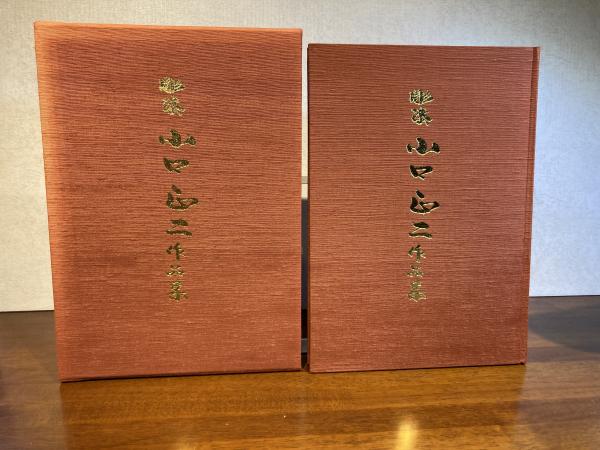 彫漆 小口正二作品集
彫漆 小口正二作品集